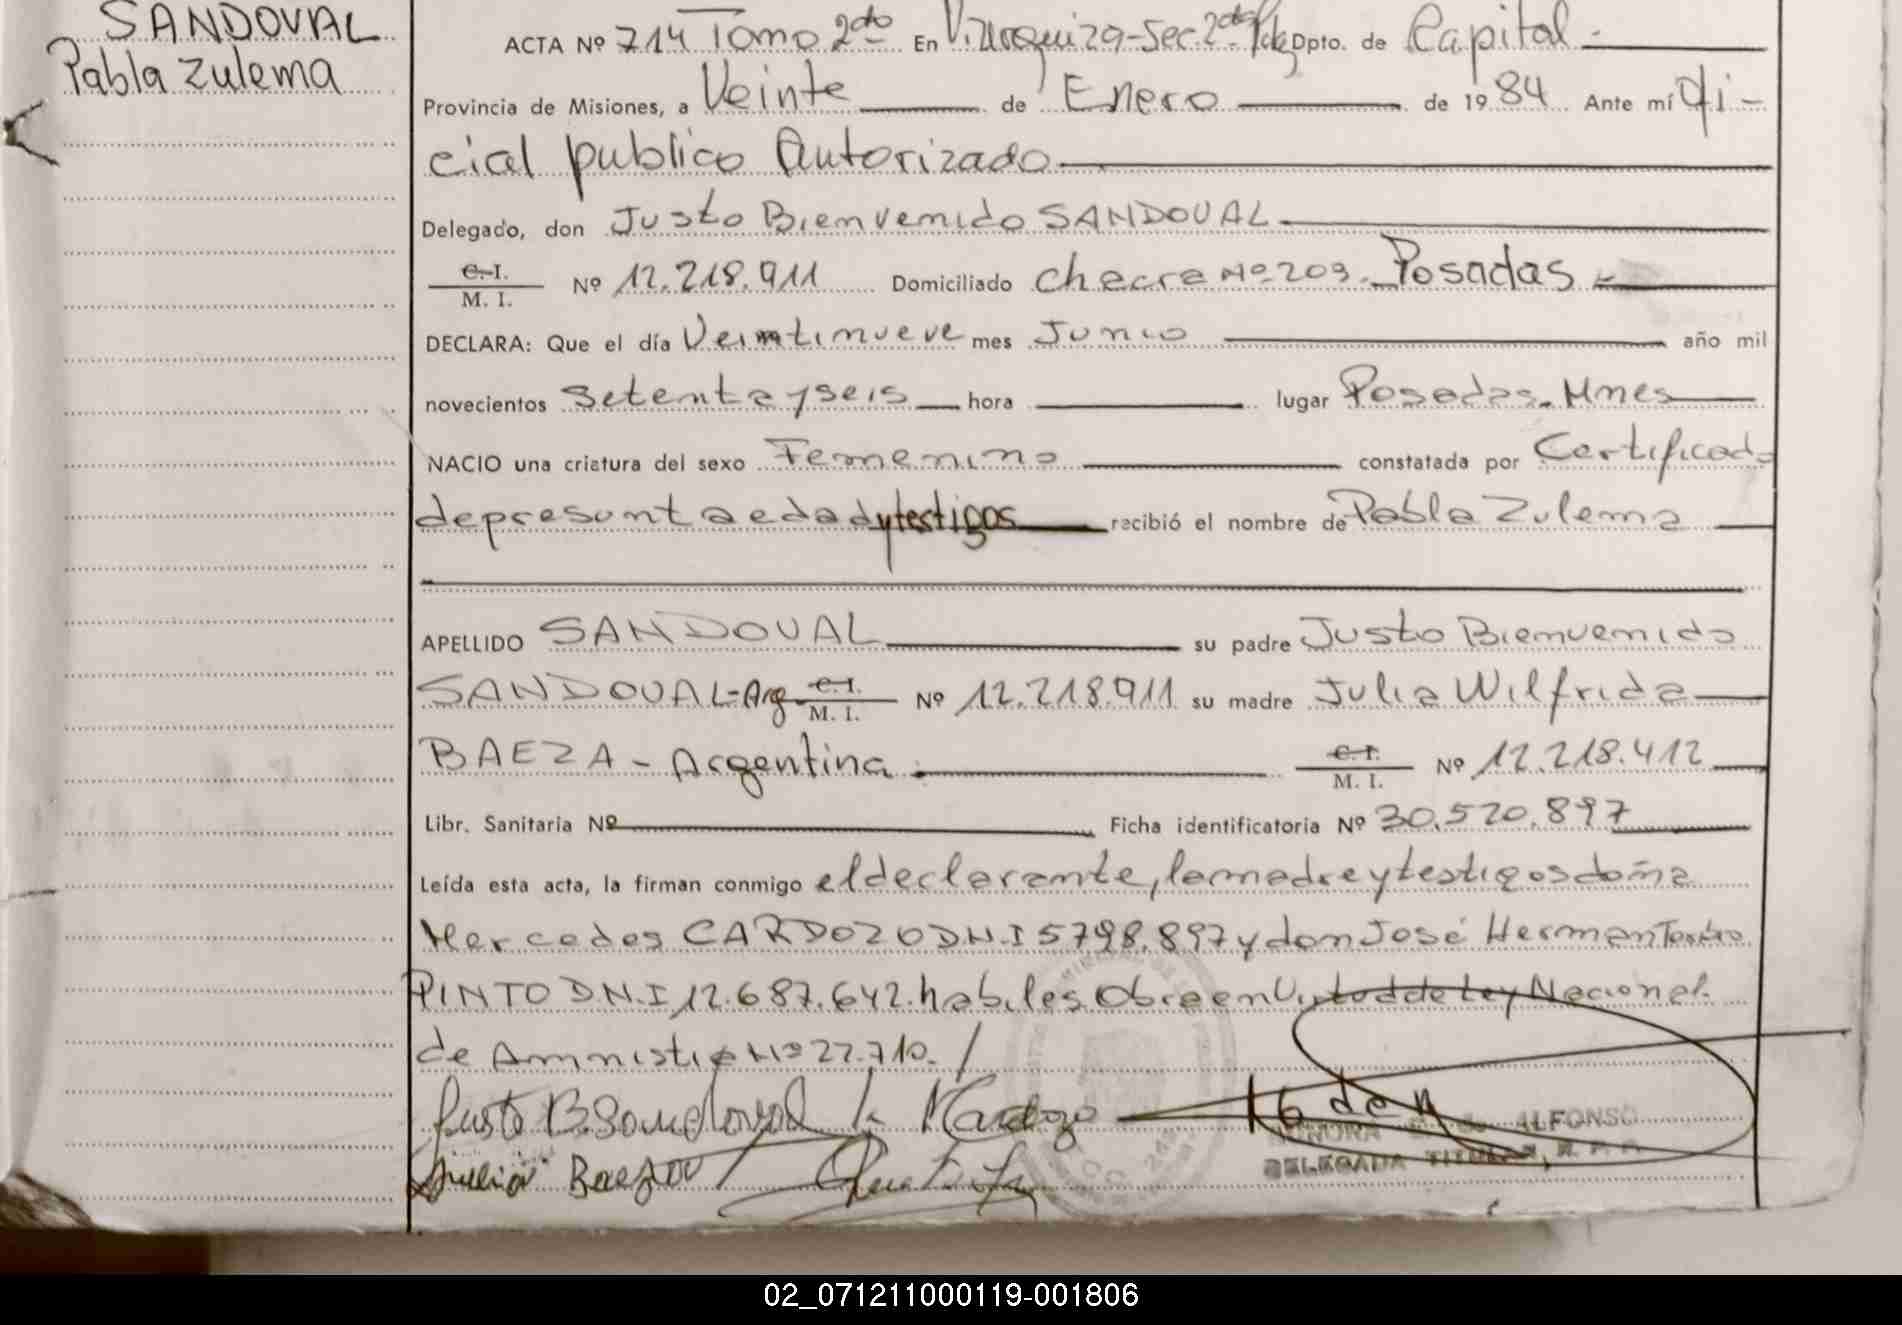 SANDOVAL
Pabla Zulema
ACTA Nº 714 Tomo 2do En V. Urquiza-Sec. 2da Pdas Dpto. de Capital.-
Provincia de Misiones, a Veinte de Enero de 1984 Ante mí Ofi-
cial publico Autorizado
Delegado, don Justo Bienvenido SANDOVAL
C. I. / M. I. Nº 12.218.911 Domiciliado Chacra Nº 209. Posadas -
DECLARA: Que el día Veintinueve mes Junio año mil
novecientos setenta y seis hora lugar Posadas. Mnes
NACIO una criatura del sexo Femenino constatada por Certificado
de presunta edad y testigos recibió el nombre de Pabla Zulema
APELLIDO SANDOVAL su padre Justo Bienvenido
SANDOVAL-Arg C. I. / M. I. Nº 12.218.911 su madre Julia Wilfrida
BAEZA - Argentina. C. I. / M. I. Nº 12.218.412
Libr. Sanitaria Nº Ficha identificatoria Nº 30.520.897
Leída esta acta, la firman conmigo el declarante, la madre y testigos doña
Mercedes CARDOZO D.N.I 5798.897 y don José Herman
PINTO D.N.I 12.687.642. habiles. Obra en Virtud de Ley Nacional
de Amnistia Nº 22.710. /
Justo B. Sandoval M Cardozo
ALFONSO
Baeza
DELEGADA TITULAR, R. P. P.
02_071211000119-001806